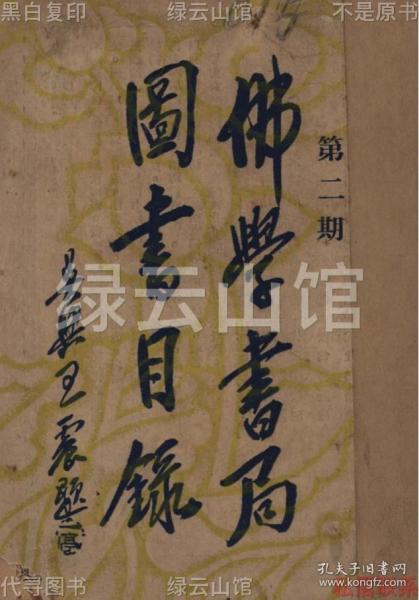 黑白复印
绿云山馆
不是原书
第二期
佛學書局
圖書目錄
吳興王震題
绿云山馆
代寻图书
绿云山馆
孔夫子旧书网
www.kongfz.com